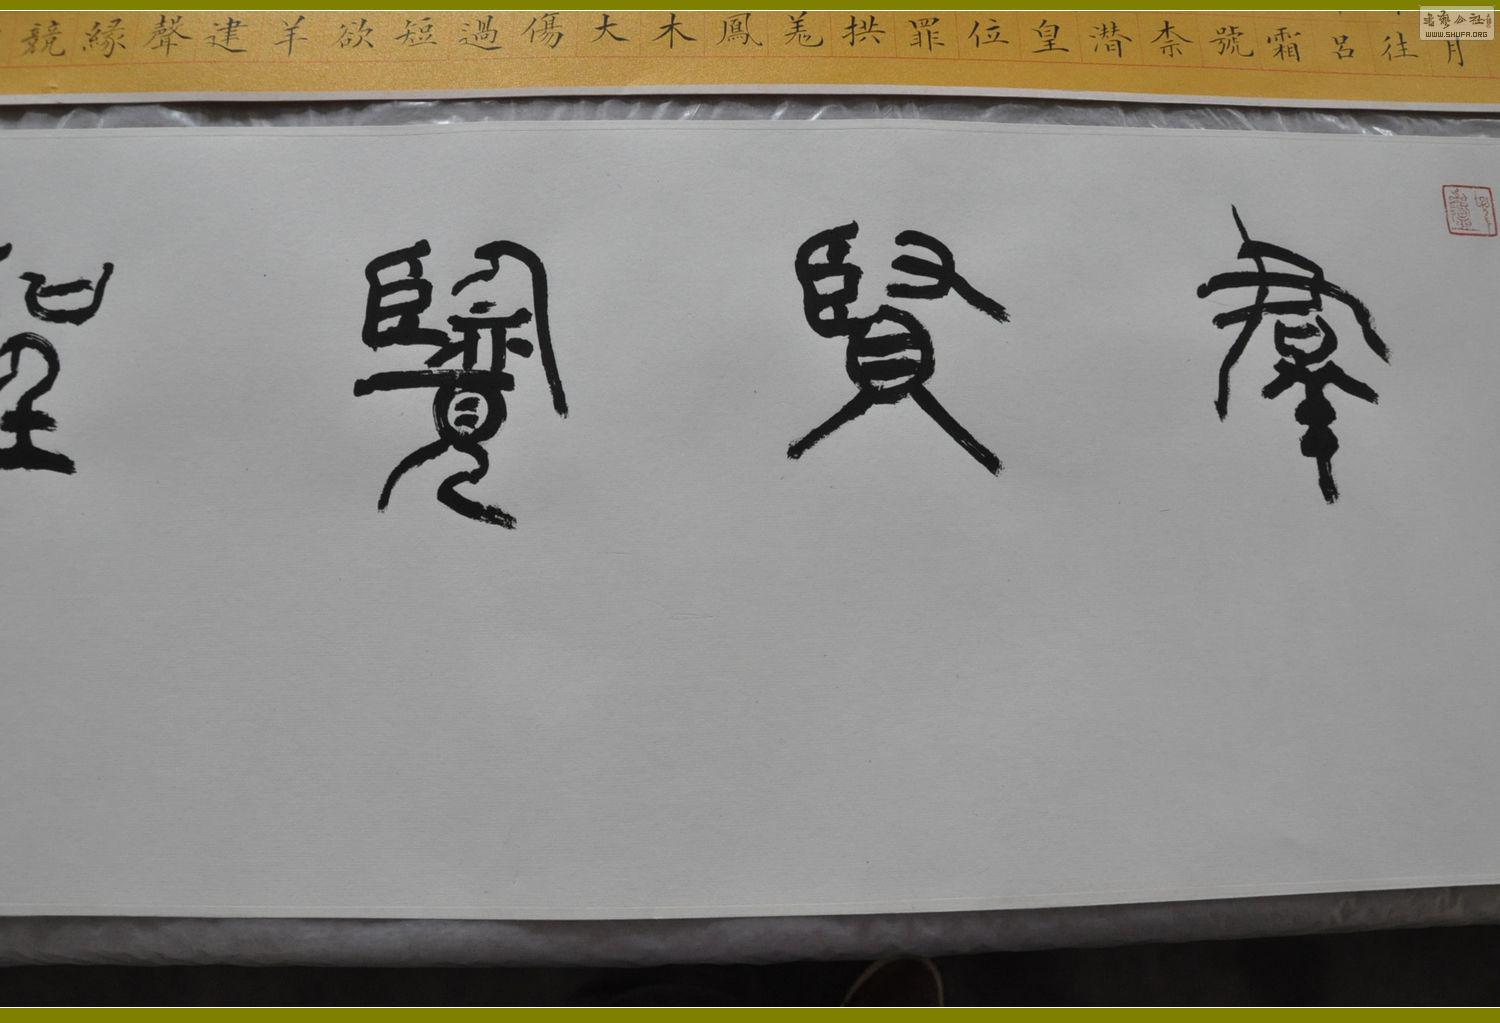 月往呂霜號柰潛皇位罪拱羌鳳木大傷過短欲羊建聲緣競
群賢覽
書藝公社
WWW.SHUFA.ORG